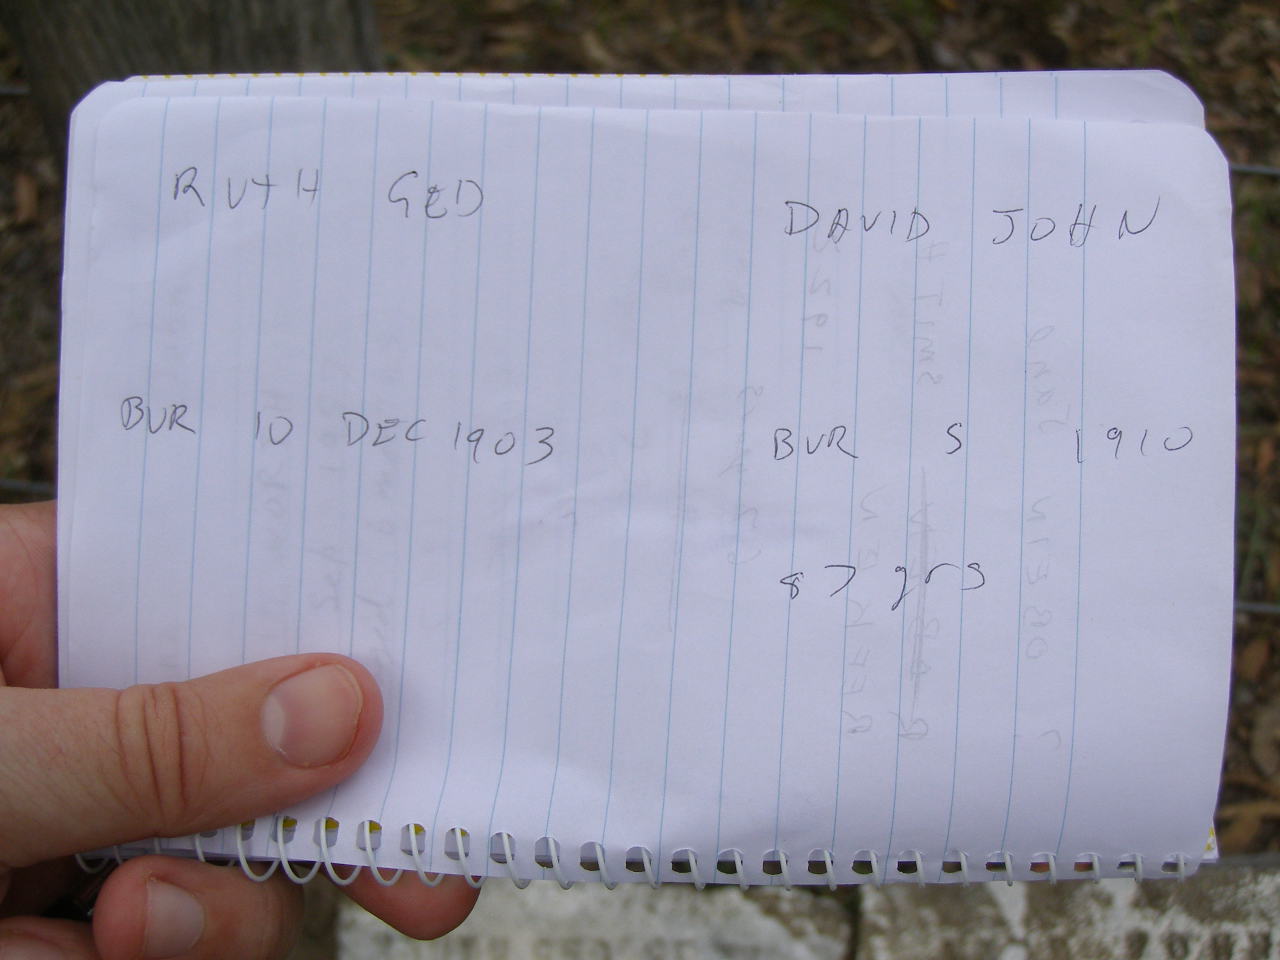 RUTH GED
BUR 10 DEC 1903
DAVID JOHN
BUR S 1910
87 yrs